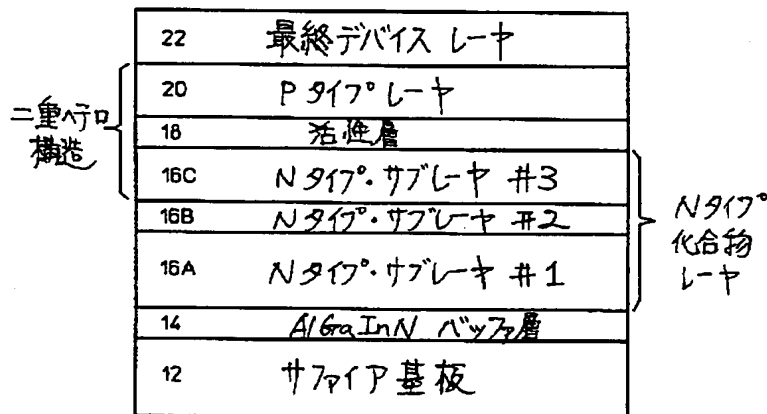 22 最終デバイス レーヤ
20 Pタイプレーヤ
18 活性層
16C Nタイプ・サブレーヤ #3
16B Nタイプ・サブレーヤ #2
16A Nタイプ・サブレーヤ #1
14 AlGaInN バッファ層
12 サファイア基板
二重ヘテロ
構造
Nタイプ
化合物
レーヤ